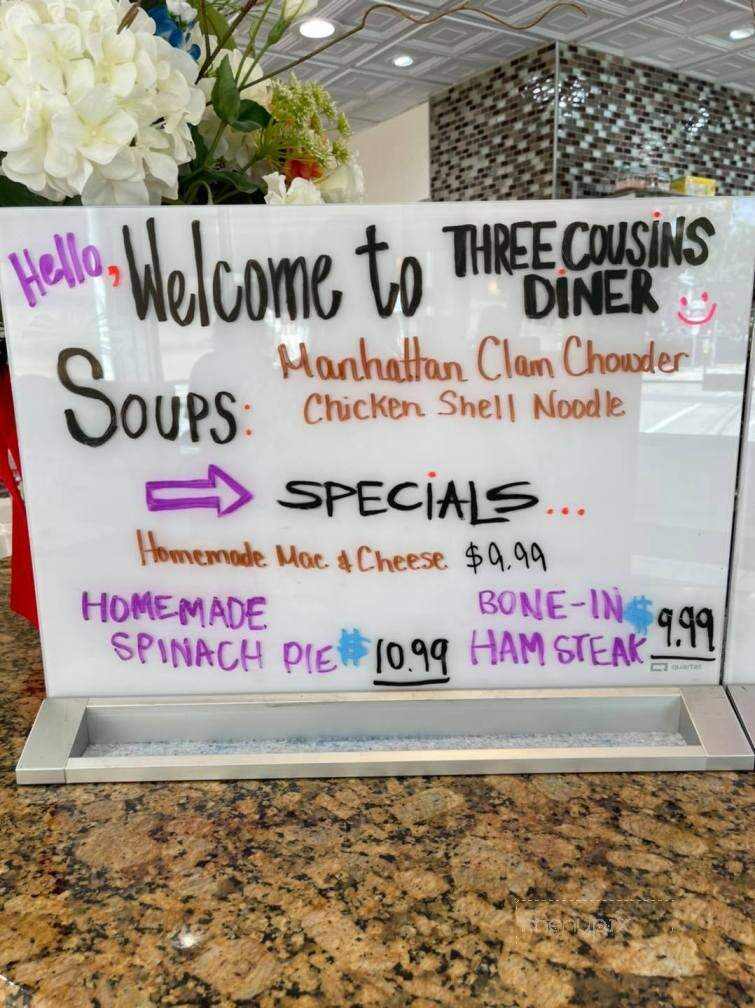 Hello, Welcome to THREE COUSiNS
DiNER
SOUPS: Manhattan Clam Chowder
Chicken Shell Noodle
SPECiALS...
Homemade Mac & Cheese $9.99
HOMEMADE
SPINACH PIE $10.99
BONE-IN
HAM STEAK $9.99
quartet
menupix